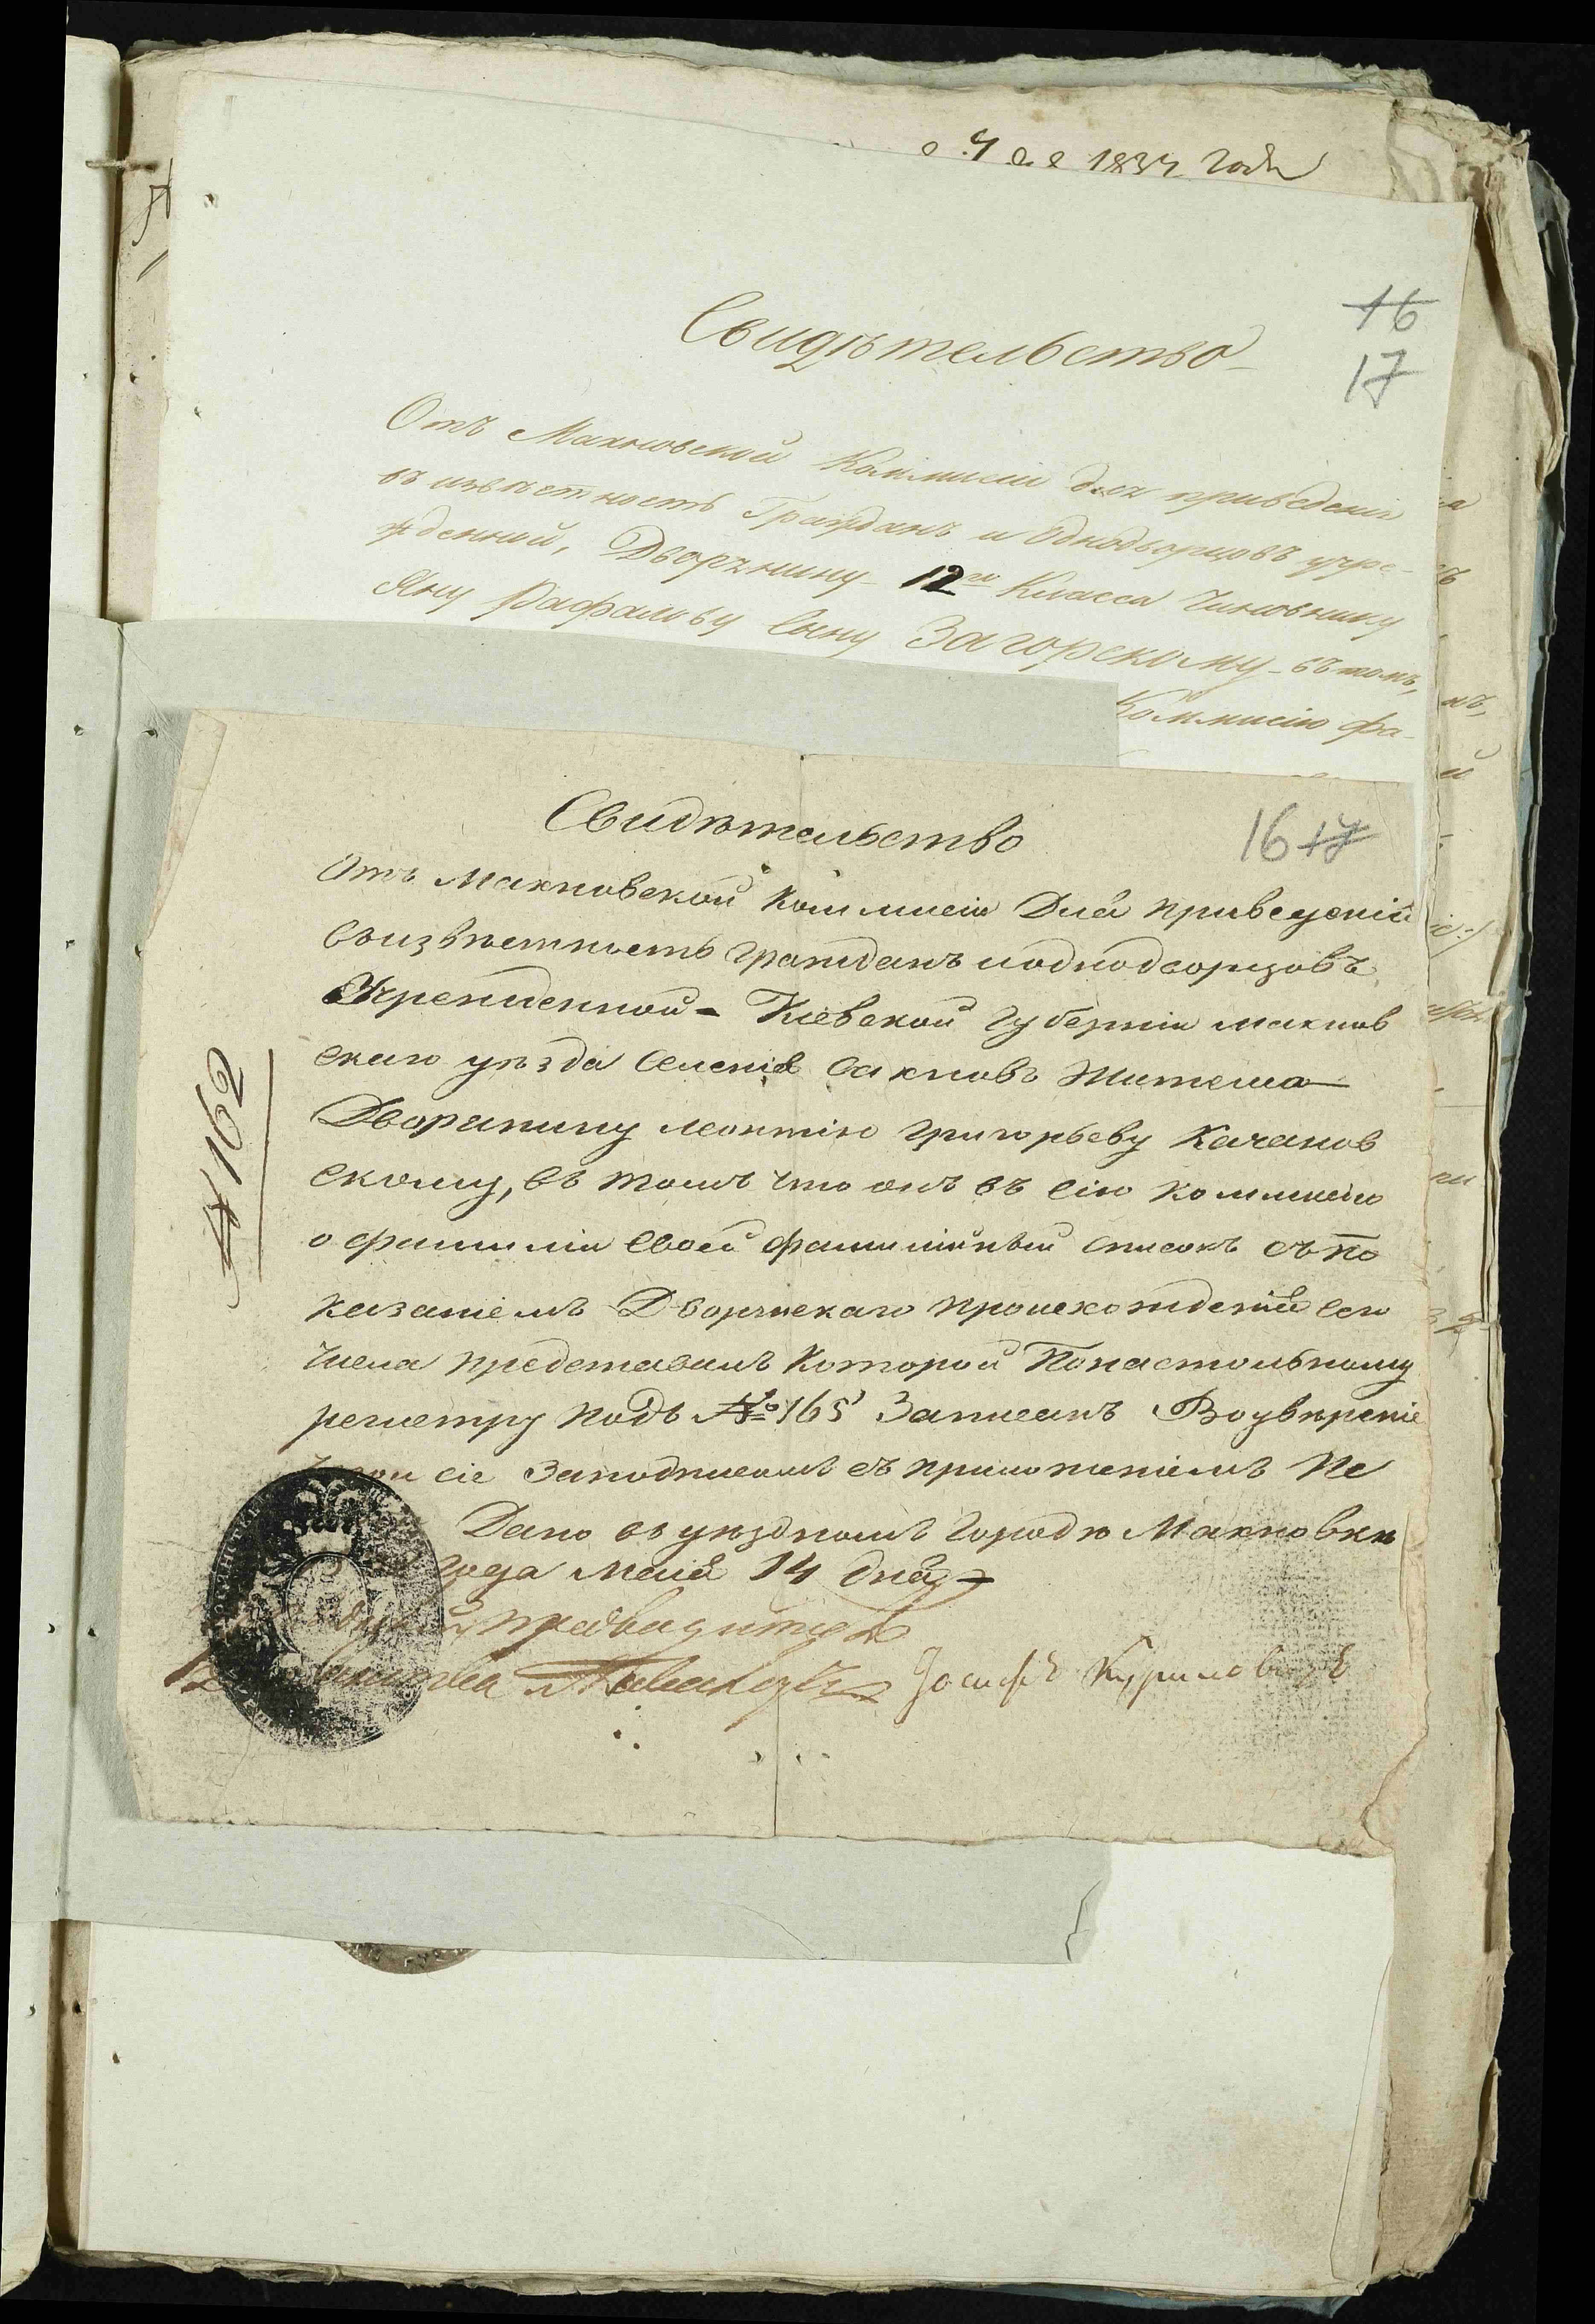 1834 года
16
17
Свидѣтельство
Отъ Махновской Коммисіи для приведенія
въ извѣстность Гражданъ и Однодворцовъ учре-
жденной, Дворянину 12го Класса Чиновнику
Яну Рафалову сыну Загорскому въ томъ,
Коммисію фа-
Свидѣтельство
16 17
Отъ Махновской Коммисіи Для приведеній
воизвѣстность гражданъ иоднодворцовъ
Учрежденной - Кіевской губерніи махнов
скаго уѣзда Селенія Сахновъ Жителю
Дворянину леонтію григорьеву Качанов
скому, въ томъ что онъ въ сію коммисію
о фамиліи своей фамилійный списокъ съ по
казаніемъ Дворянскаго происхожденія сего
числа представилъ которой Понастольному
регистру подъ № 165 Записанъ Воувѣреніе
чего сіе Заподписомъ съ приложеніемъ Пе
Дано въ уѣздномъ городѣ Махновкѣ
года маія 14 дня
предводитель
Іосифъ Куриловичъ
№ 162